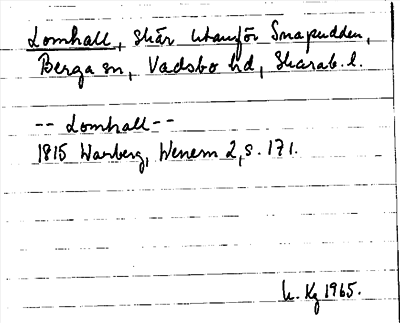 Lomhall, skär utanför Snapudden,
Berga sn, Vadsbo hd, Skarab. l.
-- Lomhall --
1815 Warberg, Wenern 2, s. 171.
Kg 1965.